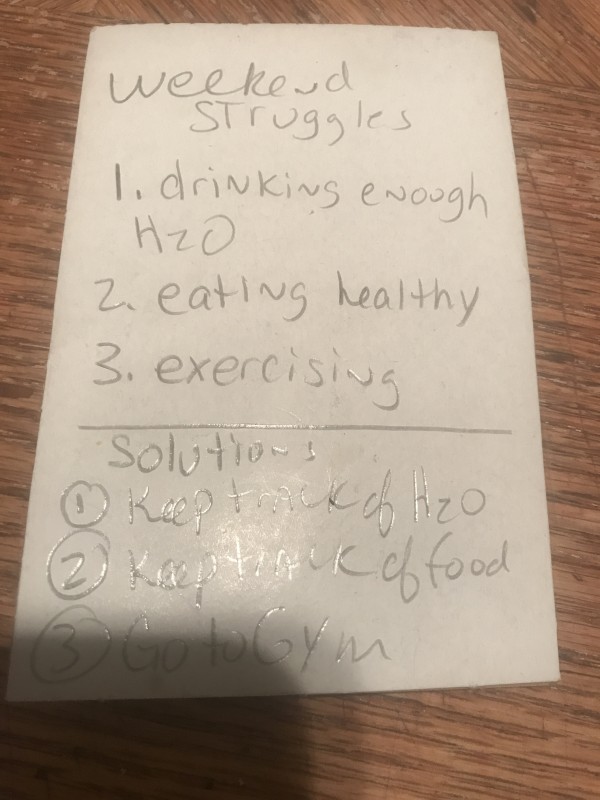 Weekend
Struggles
1. drinking enough
H2O
2. eating healthy
3. exercising
Solutions
1 Keep track of H2O
2 Keep track of food
3 Go to Gym